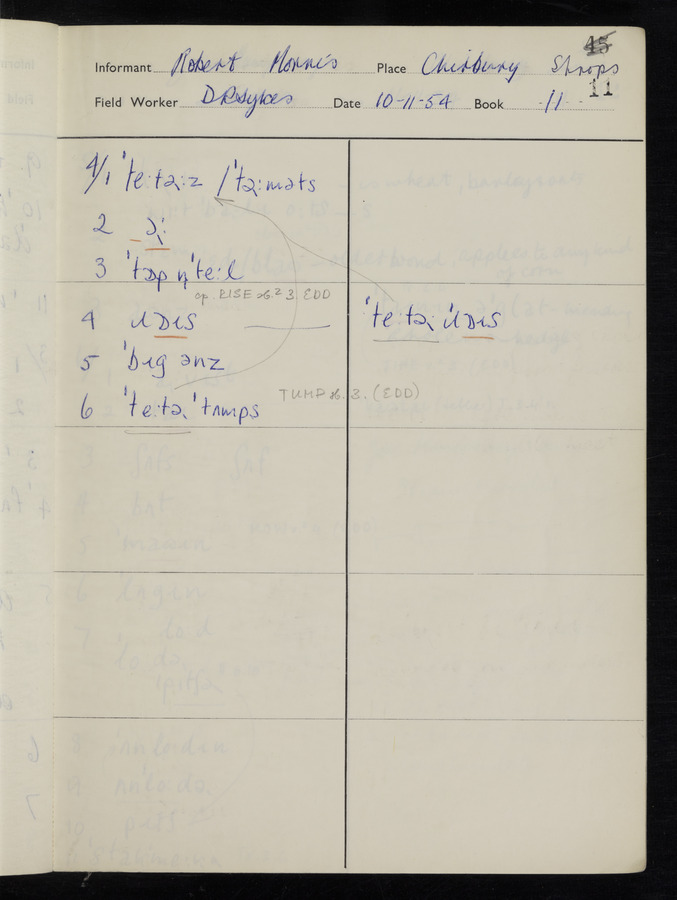 45
Informant Robert Morris Place Chirbury Shrops
11
Field Worker DRSykes Date 10-11-54 Book 11
4/1 ˈteːtəɻːz / ˈtəɻːməts
2
3 ˈtɒp ŋˈteːl
op. RISE sb.² 3. EDD
4 ɹɒɪs ˈteːtəɻ ˈɹɒɪs
5 ˈbɪg ənz
6 ˈteːtəɻ ˈtʌmps TUMP sb. 3. (EDD)